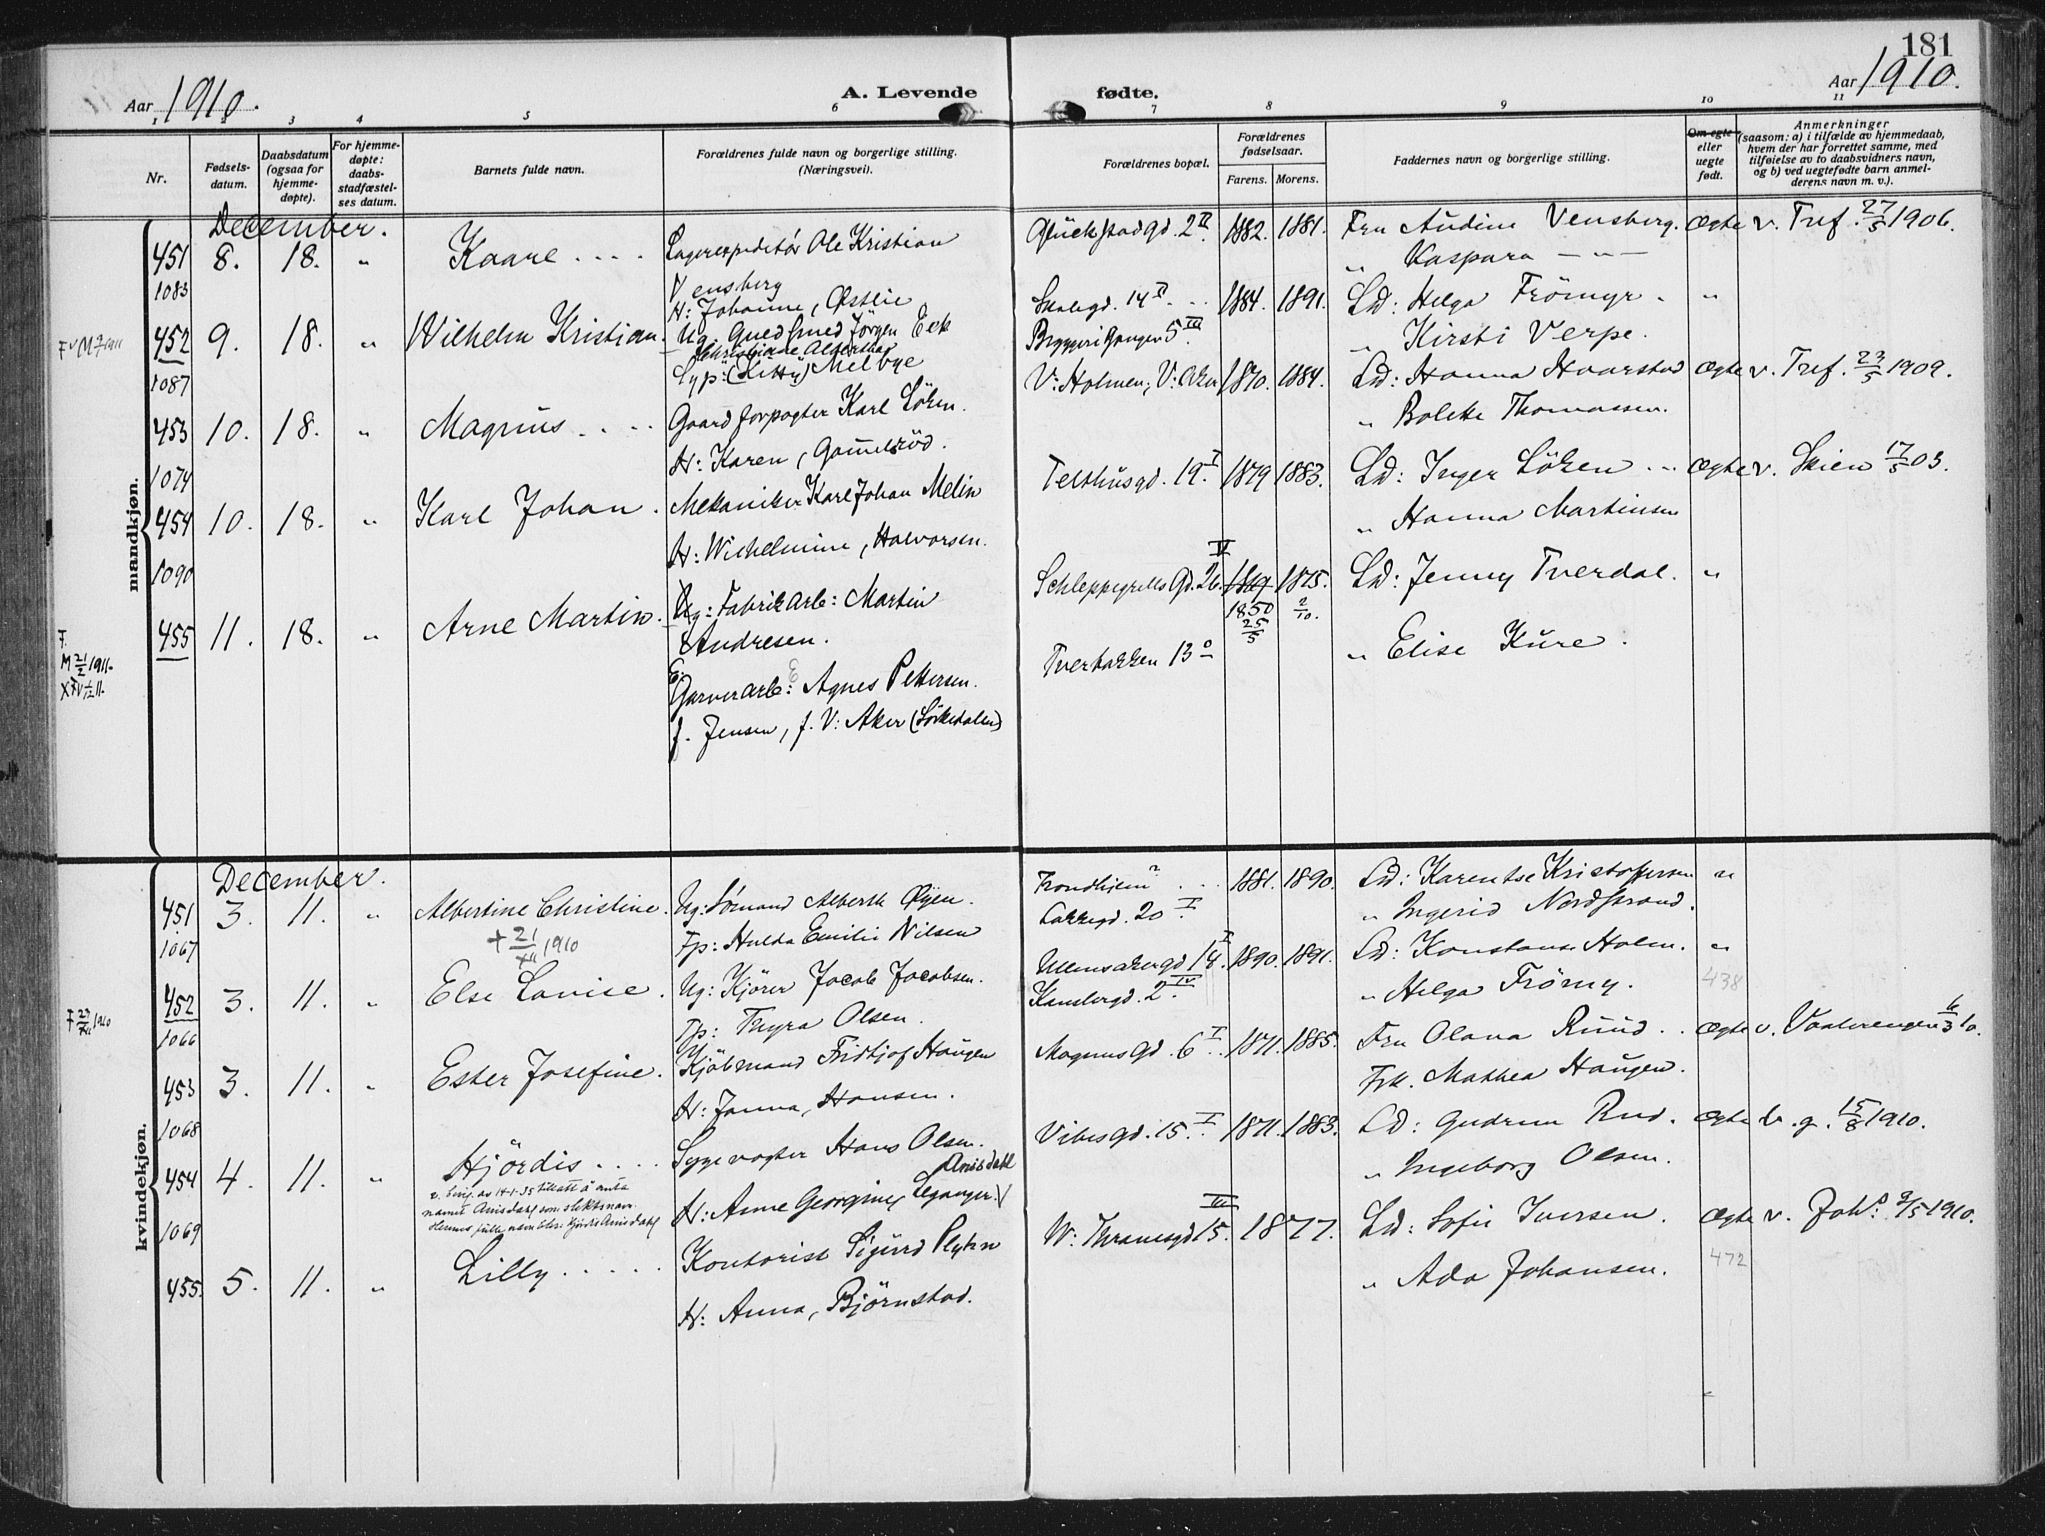 181
Aar 1910. A. Levende fødte. Aar 1910.
1 2 3 4 5 6 7 8 9 10 11
Nr.
Fødsels-
datum.
Daabsdatum
(ogsaa for
hjemme-
døpte).
For hjemme-
døpte:
daabs-
stadfæstel-
ses datum.
Barnets fulde navn.
Forældrenes fulde navn og borgerlige stilling.
(Næringsvei).
Forældrenes bopæl.
Forældrenes
fødselsaar.
Farens. Morens.
Faddernes navn og borgerlige stilling.
Om egte
eller
uegte
født.
Anmerkninger
(saasom: a) i tilfælde av hjemmedaab,
hvem der har forrettet samme, med
tilføielse av to daabsvidners navn,
og b) ved uegtefødte barn anmel-
derens navn m. v.).
mandkjøn.
December.
451 8. 18. " Kaare .... Lagerexpeditör Ole Kristian
1083 Vensberg
H: Johanne, Østlie
Glückstadgd. 2 II. 1882. 1881. Fru Audine Vensberg. Ægte v. Tref. 27/5 1906.
" Kaspara — " —
452 9. 18. " Wilhelm Kristian. Ug. Guldsmed Jörgen Eek
1087 Christiane Albertha
Syp: (Kitty) Melbye
Skolegd. 14 II. 1884. 1891. Ld: Helga Frömyr. "
Bryggerigangen 5 III. " Kirsti Verpe.
453 10. 18. " Magnus .... Gaardforpagter Karl Löken.
1074 H: Karen, Gamelsröd.
V: Holmen, V: Aker 1870. 1884. Ld: Hanna Haarstad Ægte v. Tref. 23/5 1909.
" Bolette Thomassen.
454 10. 18. " Karl Johan. Mekaniker Karl Johan Melin
1090 H: Wilhelmine, Halvorsen.
Telthusgd. 19 I. 1879 1883. Ld: Inger Löken .. Ægte v. Skien 17/5 03.
" Hanna Martinsen
455 11. 18. " Arne Martin. Ug: Fabrikarb: Martin
Andresen.
Garverarb: Agnes Pettersen.
f. Jensen, f. V: Aker (Sörkedalen)
Schleppegrells Gd. 26. IV 1875. Ld: Jenny Tverdal. "
1850 25/5 2/10.
Tverbakken 13 " Elise Kure.
F.
M 21/2 1911.
kvindekjøn.
December.
451 3. 11. " Albertine Christine. Ug: Sömand Alberth Øyen.
1067 + 21/XII 1910 Fp: Hulda Emilie Nilsen
Trondhjem . .. 1881. 1890. Ld: Karentse Kristoffersen "
Lakkegd. 20 I. " Ingerid Nordstrand.
452 3. 11. " Else Lovise. Ug: Kjörer Jacob Jacobsen.
1066 Fp: Thyra Olsen.
Ullensakergd. 18 I. 1890. 1891. Ld: Konstanse Holm. "
Kanslergd. 2 IV. " Helga Frömy. 438
453 3. 11. " Ester Josefine. Kjöbmand Fridtjof Haugen
1068 H: Janna, Hansen.
Magnusgd. 6 I .. 1871. 1885. Fru Olava Ruud .. Ægte v. Vaalerengen 6/3 10.
Frk. Mathea Haugen.
454 4. 11. " Hjördis .... Sygevogter Hans Olsen.
1069 H: Anne Georgine, Leganger. Anisdahl
v. bevj. av 14-1-35 tillatt å anta
navnet Anisdahl som slektsnavn.
Hennes fulle navn blir: Hjördis Anisdahl
Vibesgd. 15 I. 1871. 1883. Ld: Gudrun Rud. Ægte b. g. 15/8 1910.
" Ingeborg Olsen.
455. 5. 11. " Lilly ..... Kontorist Sigurd Plykn
H: Anna, Björnstad.
W: Thranesgd. 15. III 1877. Ld: Sofie Iversen. Ægte v. Joh. 9/5 1910.
" Ada Johansen. 472